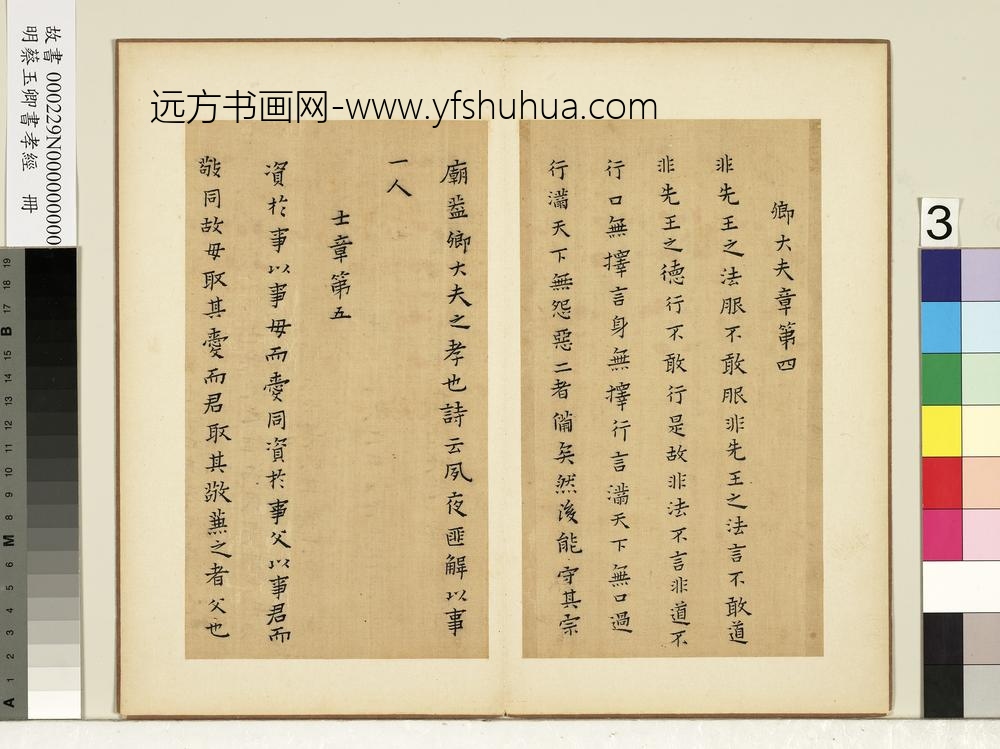 远方书画网-www.yfshuhua.com
卿大夫章第四
非先王之法服不敢服非先王之法言不敢道
非先王之德行不敢行是故非法不言非道不
行口無擇言身無擇行言滿天下無口過
行滿天下無怨惡二者備矣然後能守其宗
廟蓋卿大夫之孝也詩云夙夜匪解以事
一人
士章第五
資於事以事母而愛同資於事父以事君而
敬同故母取其愛而君取其敬兼之者父也
故書 000229N000000000
明蔡玉卿書孝經 冊
3
A 1 2 3 4 5 6 M 8 9 10 11 12 13 14 15 B 17 18 19